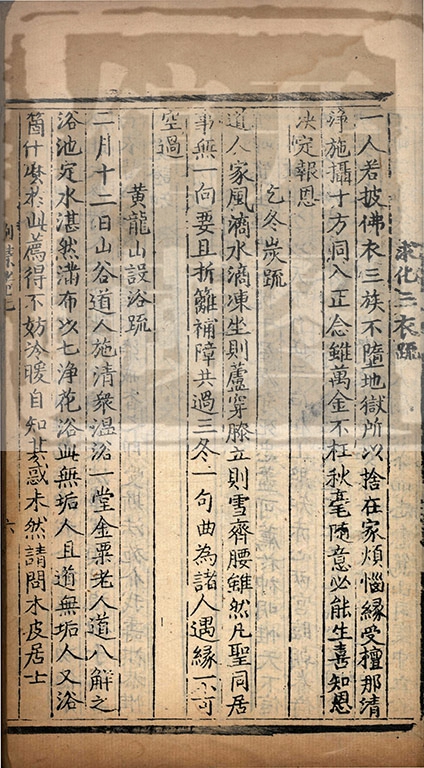 求化三衣疏
一人若披佛衣三族不墮地獄所以捨在家煩惱緣受檀那清
淨施攝十方同入正念雖萬金不枉秋毫隨意必能生喜知恩
決定報恩
乞冬炭疏
道人家風滴水滴凍坐則蘆穿膝立則雪齊腰雖然凡聖同居
事無一向要且折籬補障共過三冬一句曲為諸人遇緣不可
空過
黄龍山設浴疏
二月十二日山谷道人施清衆溫浴一堂金粟老人道八解之
浴池定水湛然滿布以七淨花浴此無垢人且道無垢人又浴
箇什麼於此薦得不妨冷暖自知其或未然請問木皮居士
六